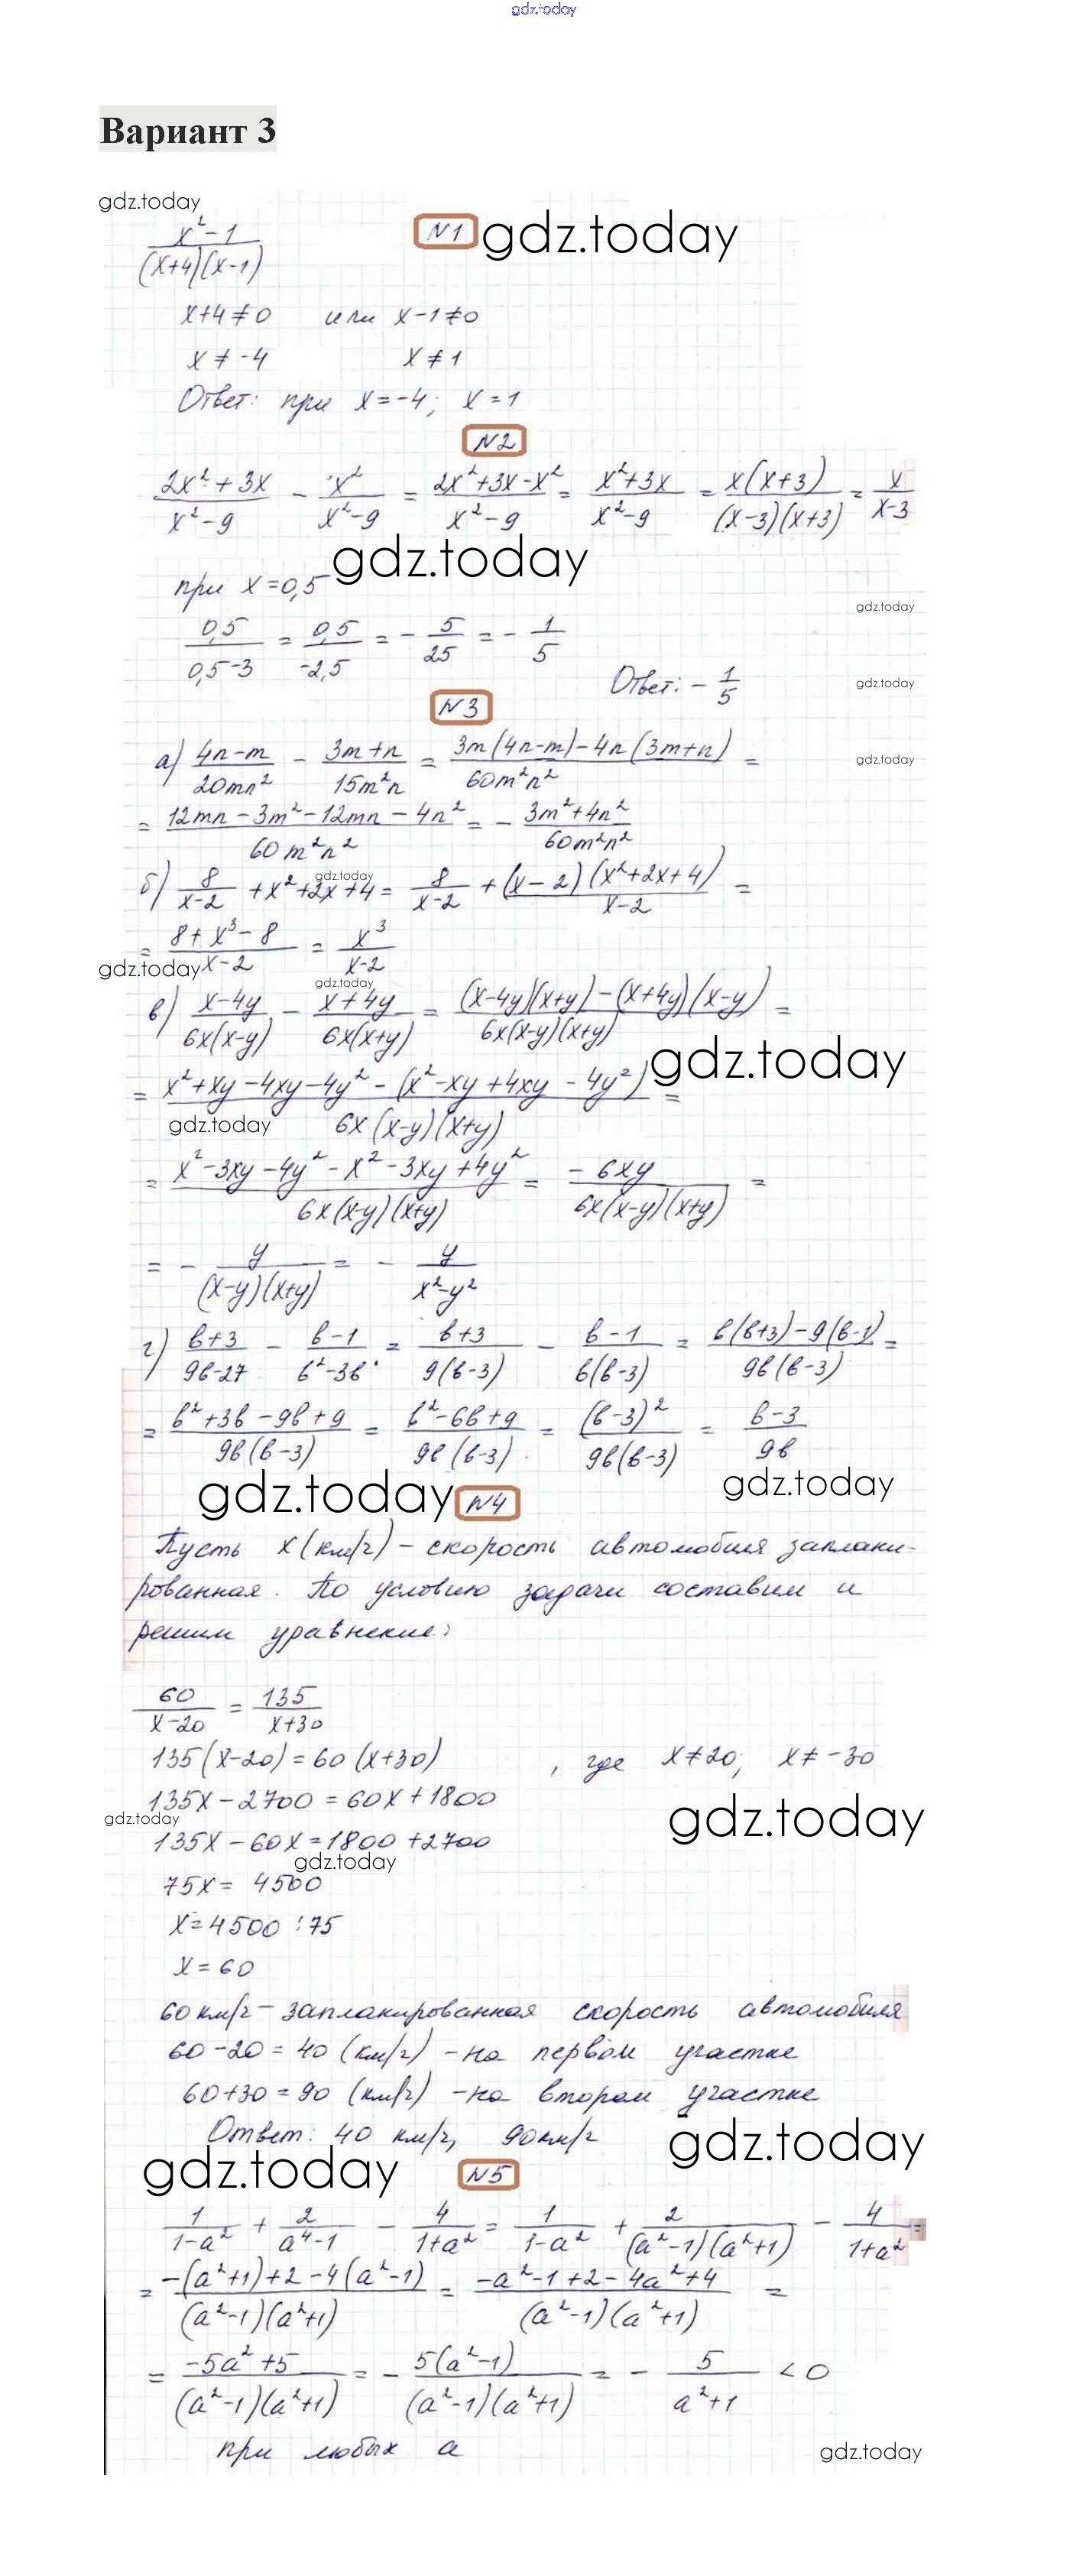 gdz.today
Вариант 3
gdz.today
№1 gdz.today
(x²-1)/((x+4)(x-1))
x+4≠0 или x-1≠0
x≠-4 x≠1
Ответ: при x=-4; x=1
№2
(2x²+3x)/(x²-9) - x²/(x²-9) = (2x²+3x-x²)/(x²-9) = (x²+3x)/(x²-9) = x(x+3)/((x-3)(x+3)) = x/(x-3)
gdz.today
при x=0,5
gdz.today
0,5/(0,5-3) = 0,5/-2,5 = -5/25 = -1/5
Ответ: -1/5
gdz.today
№3
а) (4n-m)/(20mn²) - (3m+n)/(15m²n) = (3m(4n-m)-4n(3m+n))/(60m²n²) =
gdz.today
= (12mn-3m²-12mn-4n²)/(60m²n²) = -(3m²+4n²)/(60m²n²)
gdz.today
б) 8/(x-2) + x²+2x+4 = 8/(x-2) + (x-2)(x²+2x+4)/(x-2) =
= (8+x³-8)/(x-2) = x³/(x-2)
gdz.today
gdz.today
в) (x-4y)/(6x(x-y)) - (x+4y)/(6x(x+y)) = ((x-4y)(x+y)-(x+4y)(x-y))/(6x(x-y)(x+y)) =
gdz.today
= (x²+xy-4xy-4y²-(x²-xy+4xy-4y²))/(6x(x-y)(x+y)) =
gdz.today
= (x²-3xy-4y²-x²-3xy+4y²)/(6x(x-y)(x+y)) = -6xy/(6x(x-y)(x+y)) =
= -y/((x-y)(x+y)) = -y/(x²-y²)
г) (в+3)/(9в-27) - (в-1)/(в²-3в) = (в+3)/(9(в-3)) - (в-1)/(в(в-3)) = (в(в+3)-9(в-1))/(9в(в-3)) =
= (в²+3в-9в+9)/(9в(в-3)) = (в²-6в+9)/(9в(в-3)) = (в-3)²/(9в(в-3)) = (в-3)/(9в)
gdz.today №4 gdz.today
Пусть x (км/ч) - скорость автомобиля заплани-
рованная. По условию задачи составим и
решим уравнение:
60/(x-20) = 135/(x+30)
135(x-20)=60(x+30) , где x≠20; x≠-30
135x-2700=60x+1800
gdz.today gdz.today
135x-60x=1800+2700
gdz.today
75x=4500
x=4500:75
x=60
60 км/ч - запланированная скорость автомобиля
60-20=40 (км/ч) - на первом участке
60+30=90 (км/ч) - на втором участке
Ответ: 40 км/ч, 90 км/ч
gdz.today
gdz.today №5
1/(1-a²) + 2/(a⁴-1) - 4/(1+a²) = 1/(1-a²) + 2/((a²-1)(a²+1)) - 4/(1+a²) =
= (-(a²+1)+2-4(a²-1))/((a²-1)(a²+1)) = (-a²-1+2-4a²+4)/((a²-1)(a²+1)) =
= (-5a²+5)/((a²-1)(a²+1)) = -5(a²-1)/((a²-1)(a²+1)) = -5/(a²+1) < 0
при любых a
gdz.today